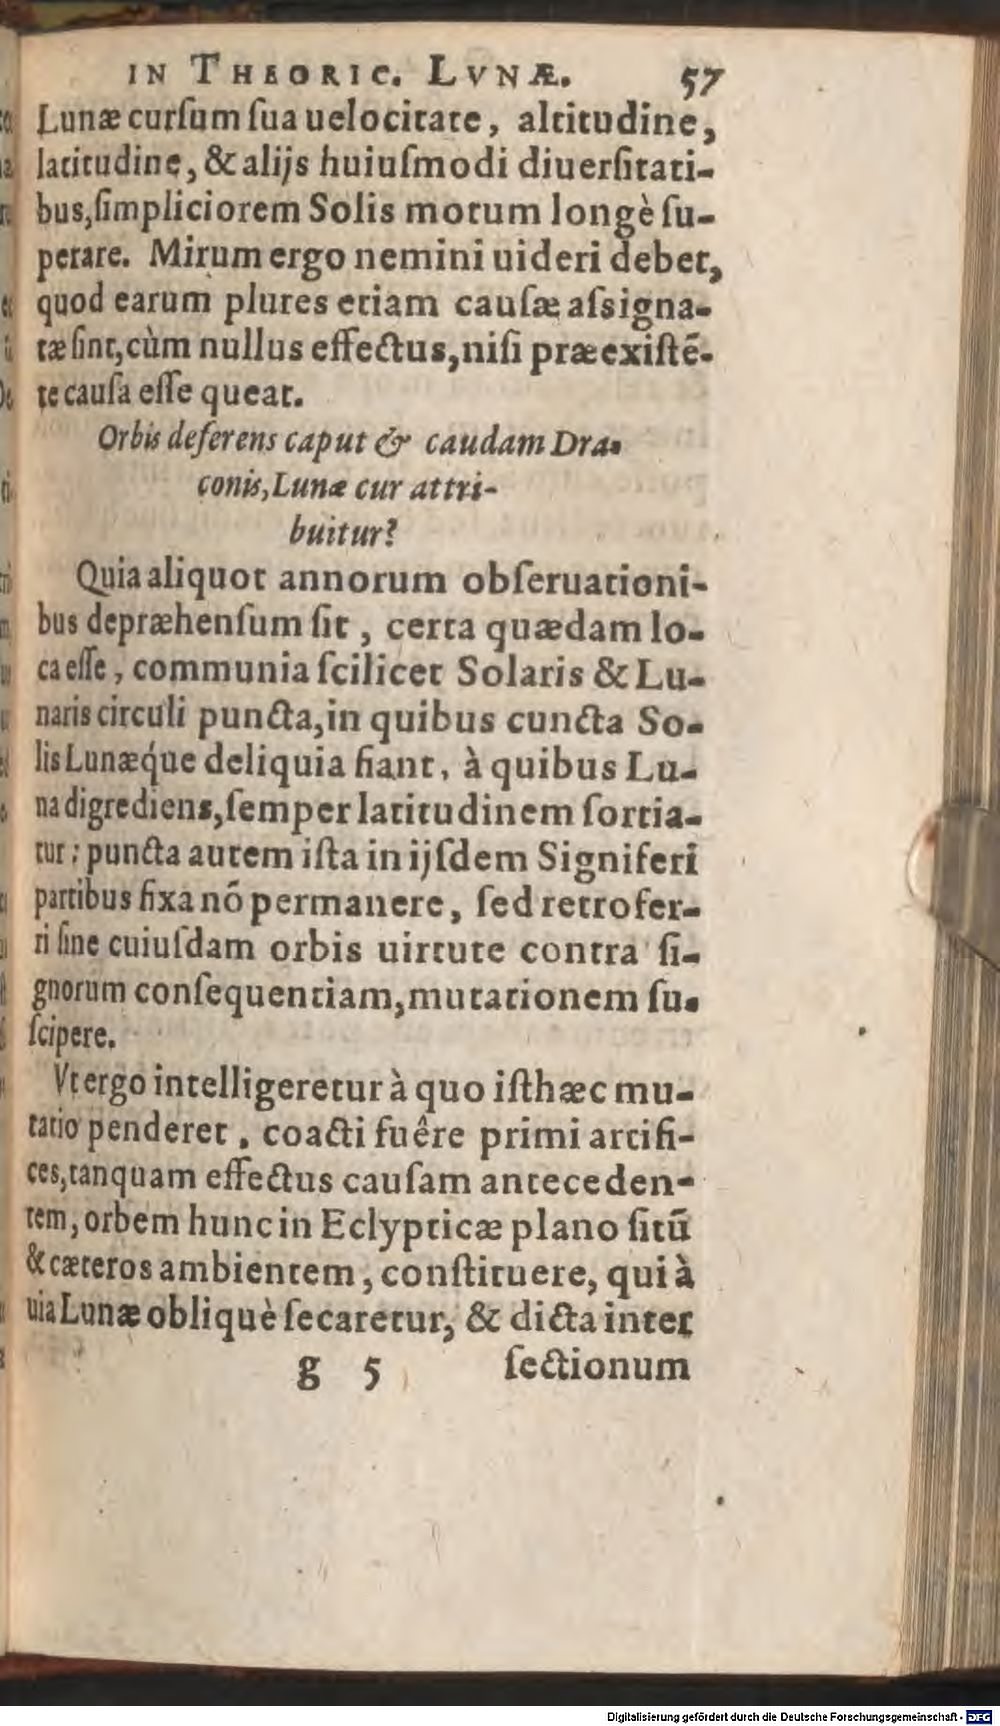 IN THEORIC. LVNÆ. 57
Lunæ curſum ſua uelocitate, altitudine,
latitudine, & alijs huiuſmodi diuerſitati-
bus, ſimpliciorem Solis motum longè ſu-
perare. Mirum ergo nemini uideri debet,
quod earum plures etiam cauſæ aſsigna-
tæ ſint, cùm nullus effectus, niſi præexiſtē-
te cauſa eſſe queat.
Orbis deferens caput & caudam Dra-
conis, Lunæ cur attri-
buitur?
Quia aliquot annorum obſeruationi-
bus depræhenſum ſit, certa quædam lo-
ca eſſe, communia ſcilicet Solaris & Lu-
naris circuli puncta, in quibus cuncta So-
lis Lunæq́ue deliquia fiant, à quibus Lu-
na digrediens, ſemper latitudinem ſortia-
tur: puncta autem iſta in ijſdem Signiferi
partibus fixa nō permanere, ſed retrofer-
ri ſine cuiuſdam orbis uirtute contra ſi-
gnorum conſequentiam, mutationem ſu-
ſcipere.
Vt ergo intelligeretur à quo iſthæc mu-
tatio penderet, coacti fuêre primi artifi-
ces, tanquam effectus cauſam anteceden-
tem, orbem hunc in Eclypticæ plano ſitū
& cæteros ambientem, conſtituere, qui à
uia Lunæ obliquè ſecaretur, & dicta inter
g 5 ſectionum
Digitalisierung gefördert durch die Deutsche Forschungsgemeinschaft - DFG